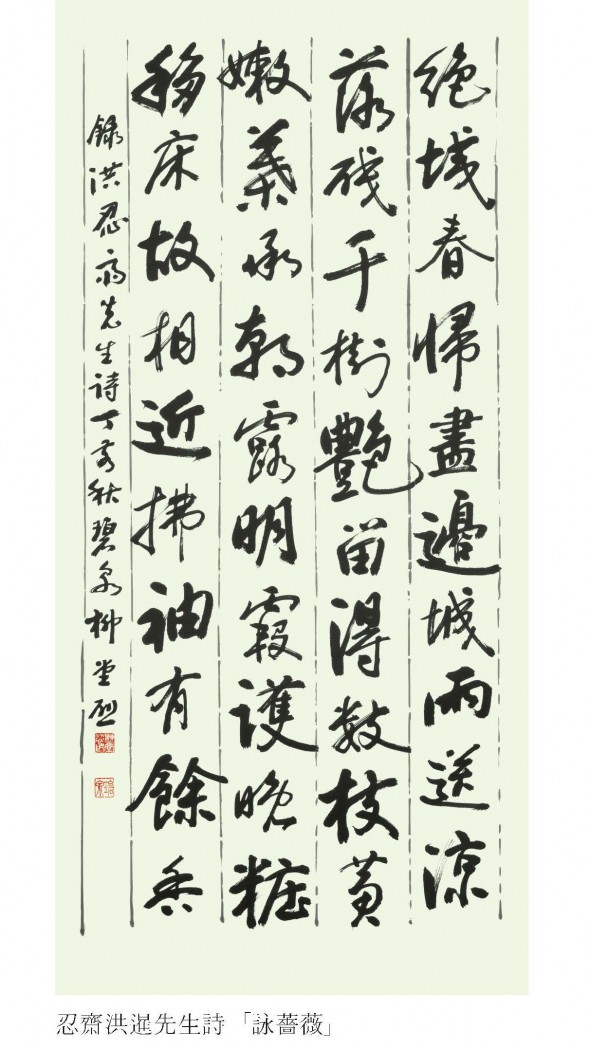 絶域春歸盡邊城雨送凉
落殘千樹艶留得數枝黄
嫩葉承朝露明霞護晩粧
移床故相近拂袖有餘香
錄洪忍齋先生詩丁亥秋碧泉柳堂烈
忍齋洪暹先生詩「詠薔薇」